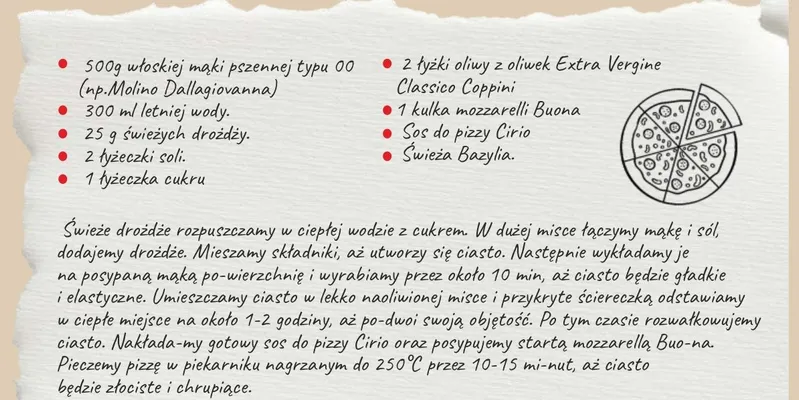 500g włoskiej mąki pszennej typu 00
(np.Molino Dallagiovanna)
300 ml letniej wody.
25 g świeżych drożdży.
2 łyżeczki soli.
1 łyżeczka cukru
2 łyżki oliwy z oliwek Extra Vergine
Classico Coppini
1 kulka mozzarelli Buona
Sos do pizzy Cirio
Świeża Bazylia.
Świeże drożdże rozpuszczamy w ciepłej wodzie z cukrem. W dużej misce łączymy mąkę i sól,
dodajemy drożdże. Mieszamy składniki, aż utworzy się ciasto. Następnie wykładamy je
na posypaną mąką po-wierzchnię i wyrabiamy przez około 10 min, aż ciasto będzie gładkie
i elastyczne. Umieszczamy ciasto w lekko naoliwionej misce i przykryte ściereczką odstawiamy
w ciepłe miejsce na około 1-2 godziny, aż po-dwoi swoją objętość. Po tym czasie rozwałkowujemy
ciasto. Nakłada-my gotowy sos do pizzy Cirio oraz posypujemy startą mozzarellą Buo-na.
Pieczemy pizzę w piekarniku nagrzanym do 250°C przez 10-15 mi-nut, aż ciasto
będzie złociste i chrupiące.